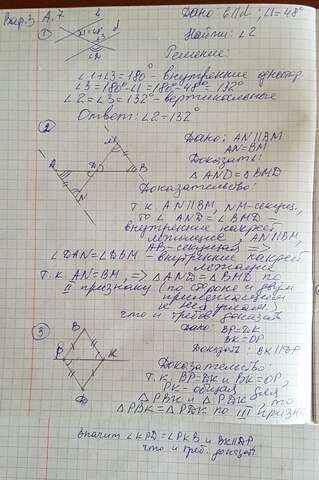 Вар. 3 А. 7
Дано: b||d; ∠1=48°
① b d ∠1=48° ∠3 ∠2
Найти: ∠2
Решение:
∠1+∠3=180° - внутренние одностор
∠3=180°-∠1=180°-48°=132°
∠2=∠3=132° - вертикальные
Ответ: ∠2=132°
② M A D B N
Дано: AN||BM
AN=BM
Доказать:
△AND=△BMD
Доказательство:
т.к. AN||BM, NM-секущ,
то ∠AND=∠BMD -
внутренние накрест
лежащие, AN||BM,
AB-секущая =>
∠DAN=∠DBM - внутренние накрест
лежащие
т.к. AN=BM, => △AND=△BMD по
II признаку (по стороне и двум
прилежащим
к ней углам)
что и треб. доказать
③
Дано: BP=DK
BK=DP
Доказать: BK||DP
Доказательство:
т.к. BP=DK и BK=DP,
PK-общая для
△PBK и △PDK, то
△PBK=△PDK по III призн
значит ∠KPD=∠PKB и BK||DP
что и треб. доказать